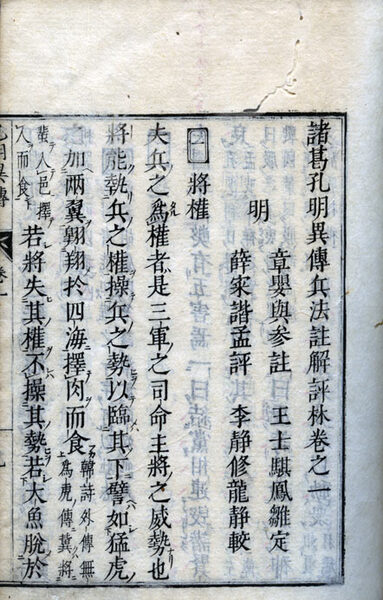 諸葛孔明異傳兵法註解評林卷之一
明
章嬰與參註　王士騏鳳雛定
薛宷諧孟評　李靜修龍靜較
將權
夫兵之為權者是三軍之司命主將之威勢也
將能執兵之權操兵之勢以臨其下譬如猛虎
之加兩翼翱翔於四海擇肉而食
韓詩外傳無
為虎傳翼將
入邑擇
人而食
若將失其權不操其勢若大魚脫於